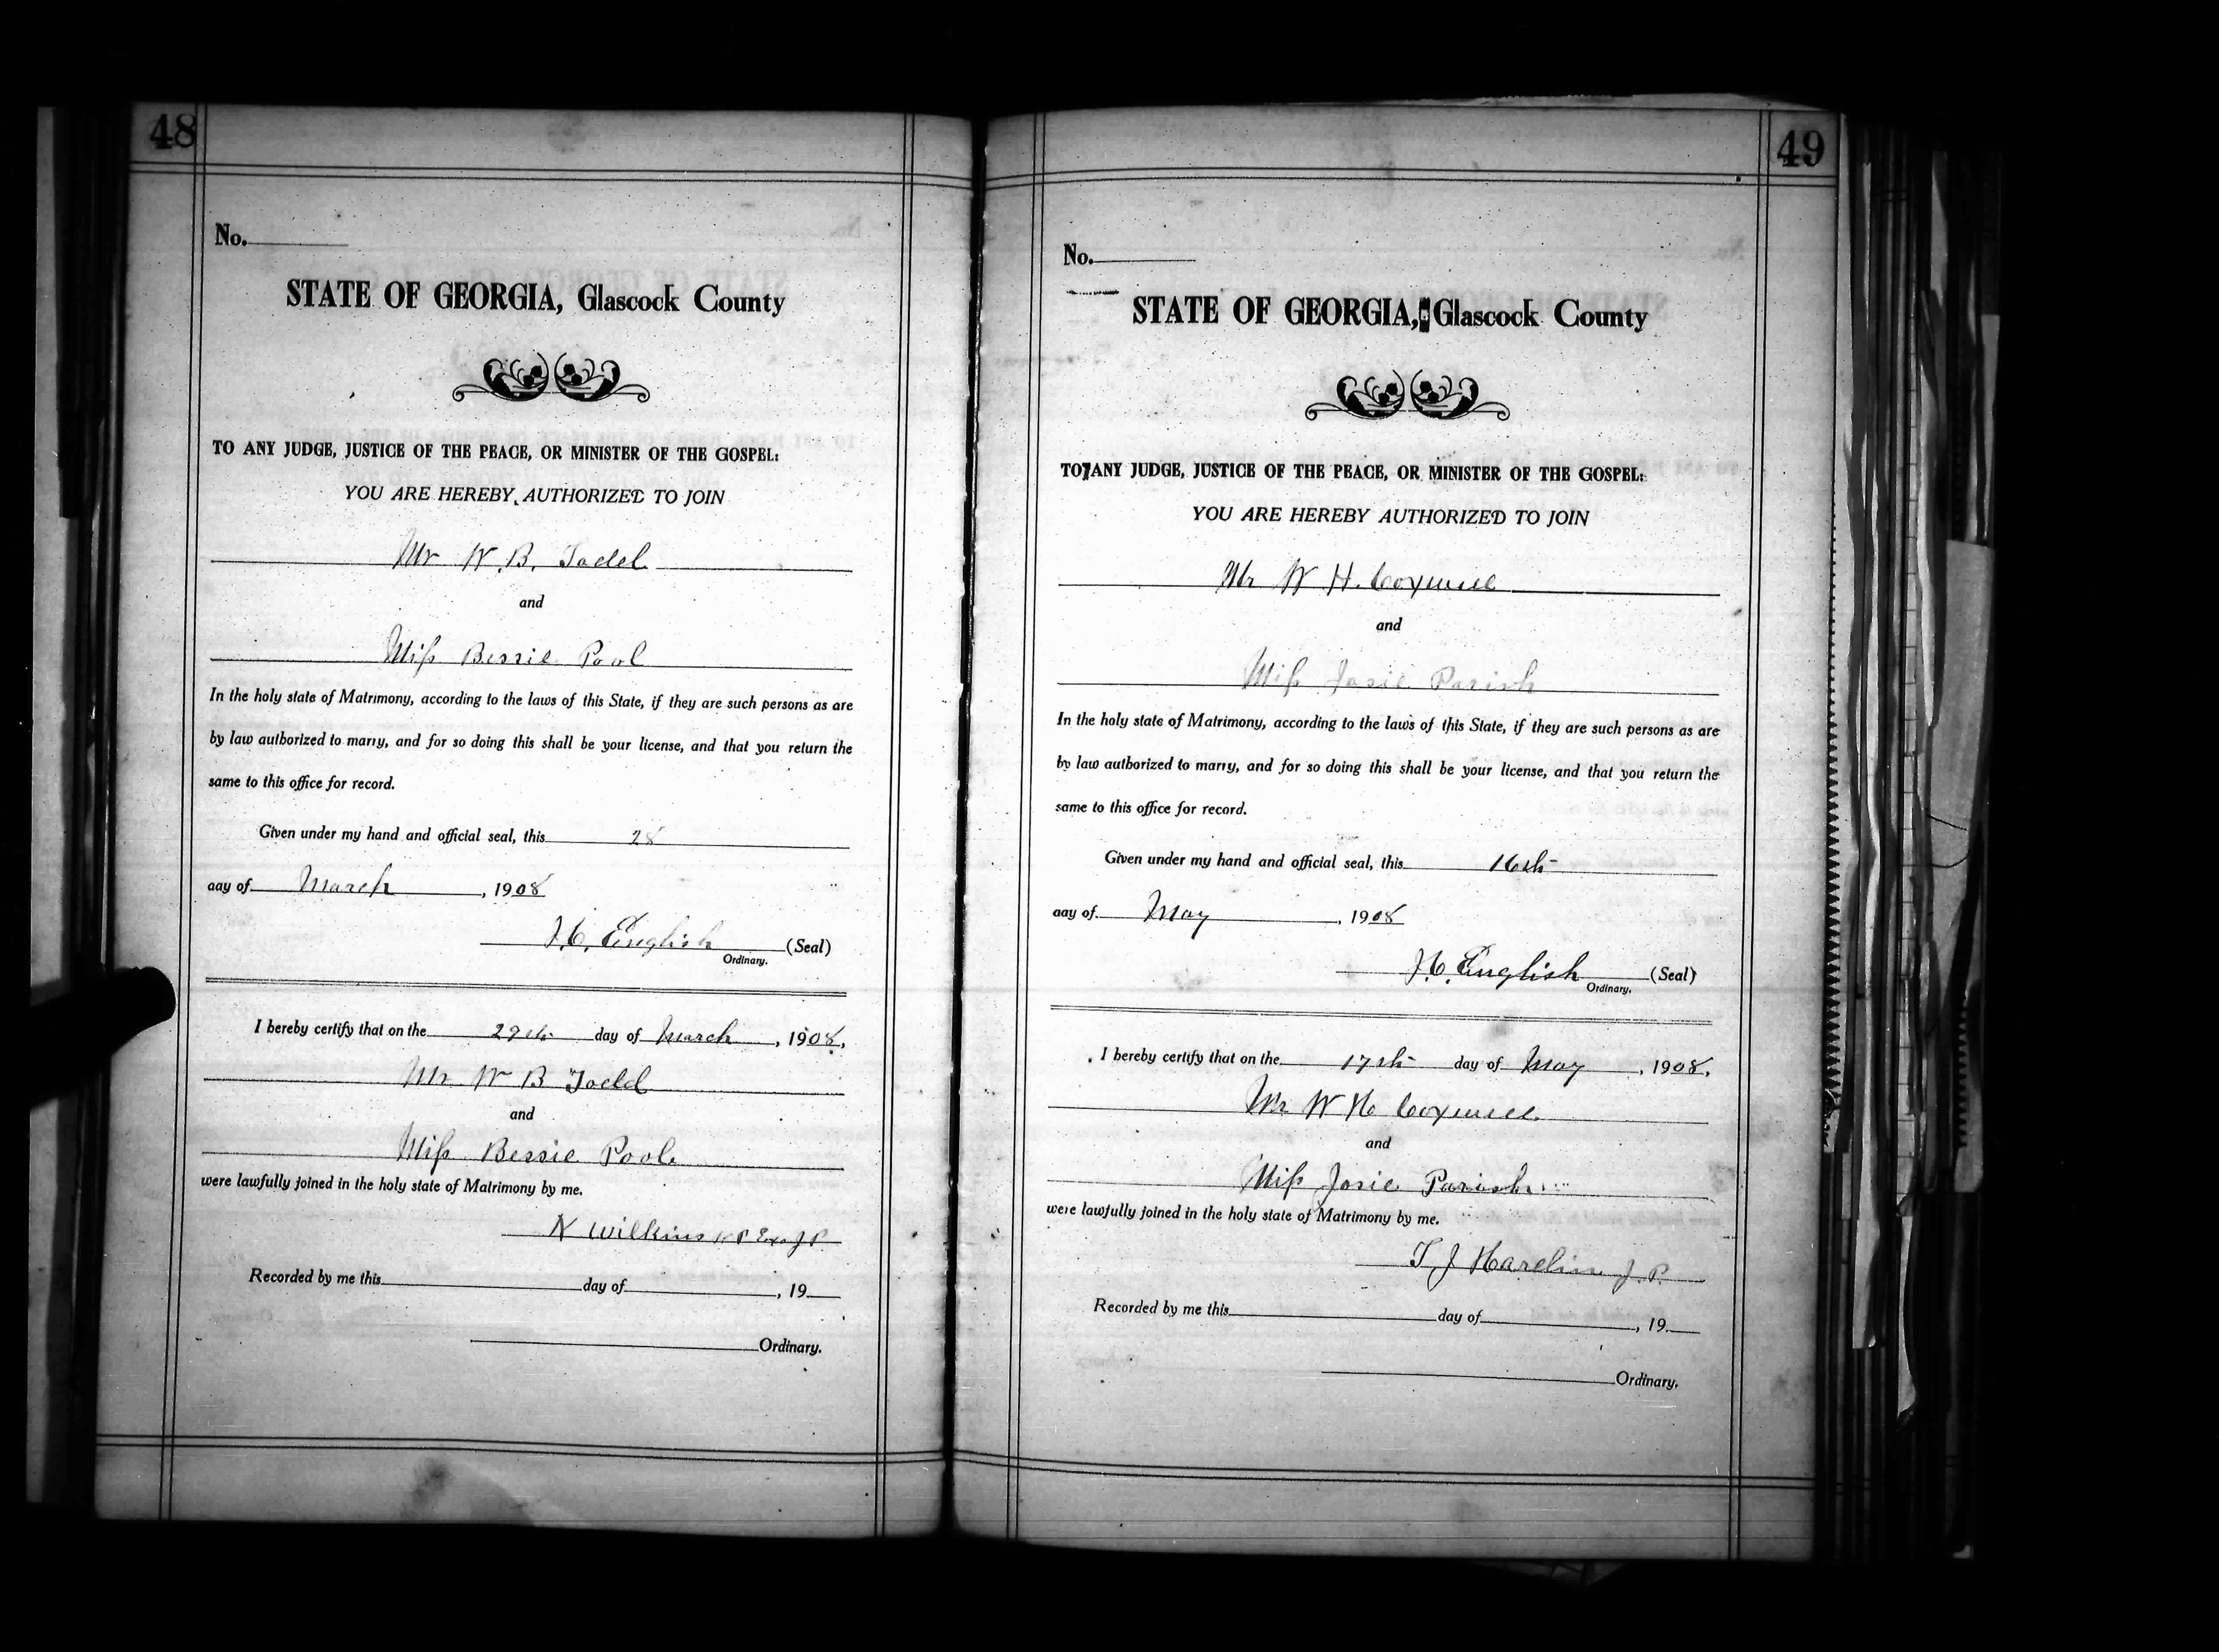 48
No.
STATE OF GEORGIA, Glascock County
TO ANY JUDGE, JUSTICE OF THE PEACE, OR MINISTER OF THE GOSPEL:
YOU ARE HEREBY AUTHORIZED TO JOIN
Mr W. B. Todd
and
Miss Bessie Pool
In the holy state of Matrimony, according to the laws of this State, if they are such persons as are
by law authorized to marry, and for so doing this shall be your license, and that you return the
same to this office for record.
Given under my hand and official seal, this 28
day of March, 1908
J. C. English (Seal)
Ordinary.
I hereby certify that on the 29th day of March, 1908.
Mr W B Todd
and
Miss Bessie Poole
were lawfully joined in the holy state of Matrimony by me.
N Wilkins J P
Recorded by me this day of , 19
Ordinary.
49
No.
STATE OF GEORGIA, Glascock County
TO ANY JUDGE, JUSTICE OF THE PEACE, OR MINISTER OF THE GOSPEL:
YOU ARE HEREBY AUTHORIZED TO JOIN
Mr W H. Coxwell
and
Miss Josie Parish
In the holy state of Matrimony, according to the laws of this State, if they are such persons as are
by law authorized to marry, and for so doing this shall be your license, and that you return the
same to this office for record.
Given under my hand and official seal, this 16th
day of May, 1908
J. C. English (Seal)
Ordinary.
I hereby certify that on the 17th day of May, 1908.
Mr W H Coxwell
and
Miss Josie Parish
were lawfully joined in the holy state of Matrimony by me.
T J Harelin J. P.
Recorded by me this day of , 19
Ordinary.